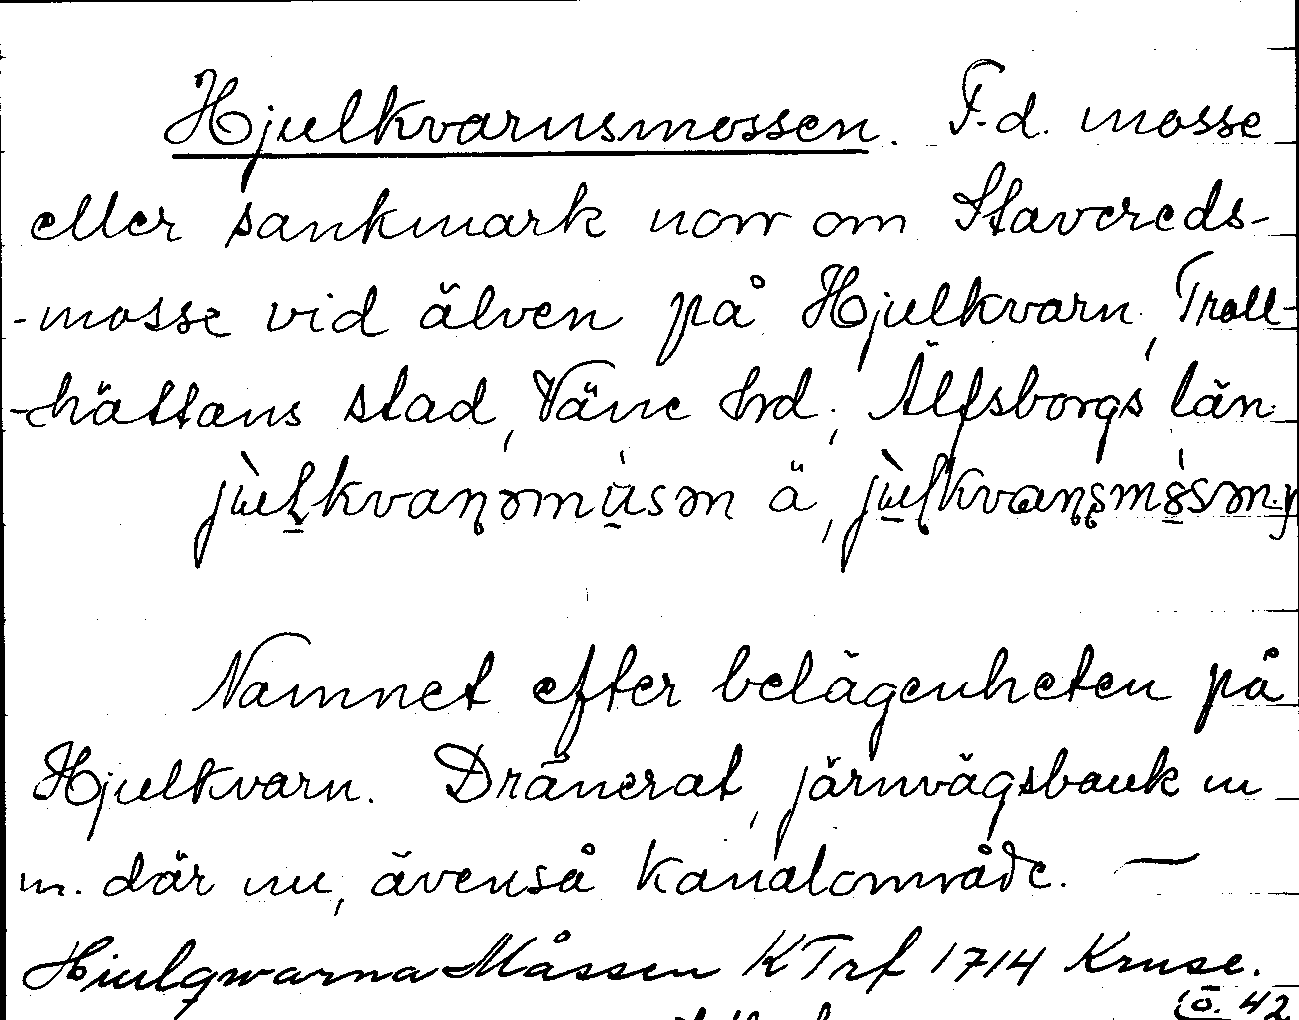 Hjulkvarnsmossen. F.d. mosse
eller sankmark norr om Stavereds-
-mosse vid älven på Hjulkvarn, Troll-
-hättans stad, Väne hrd, Älfsborgs län
ä,
Namnet efter belägenheten på
Hjulkvarn. Dränerat, järnvägsbank m
m. där nu, ävenså kanalområde. —
Hiulqwarna Måssen KTrf 1714 Kruse.
ö. 42